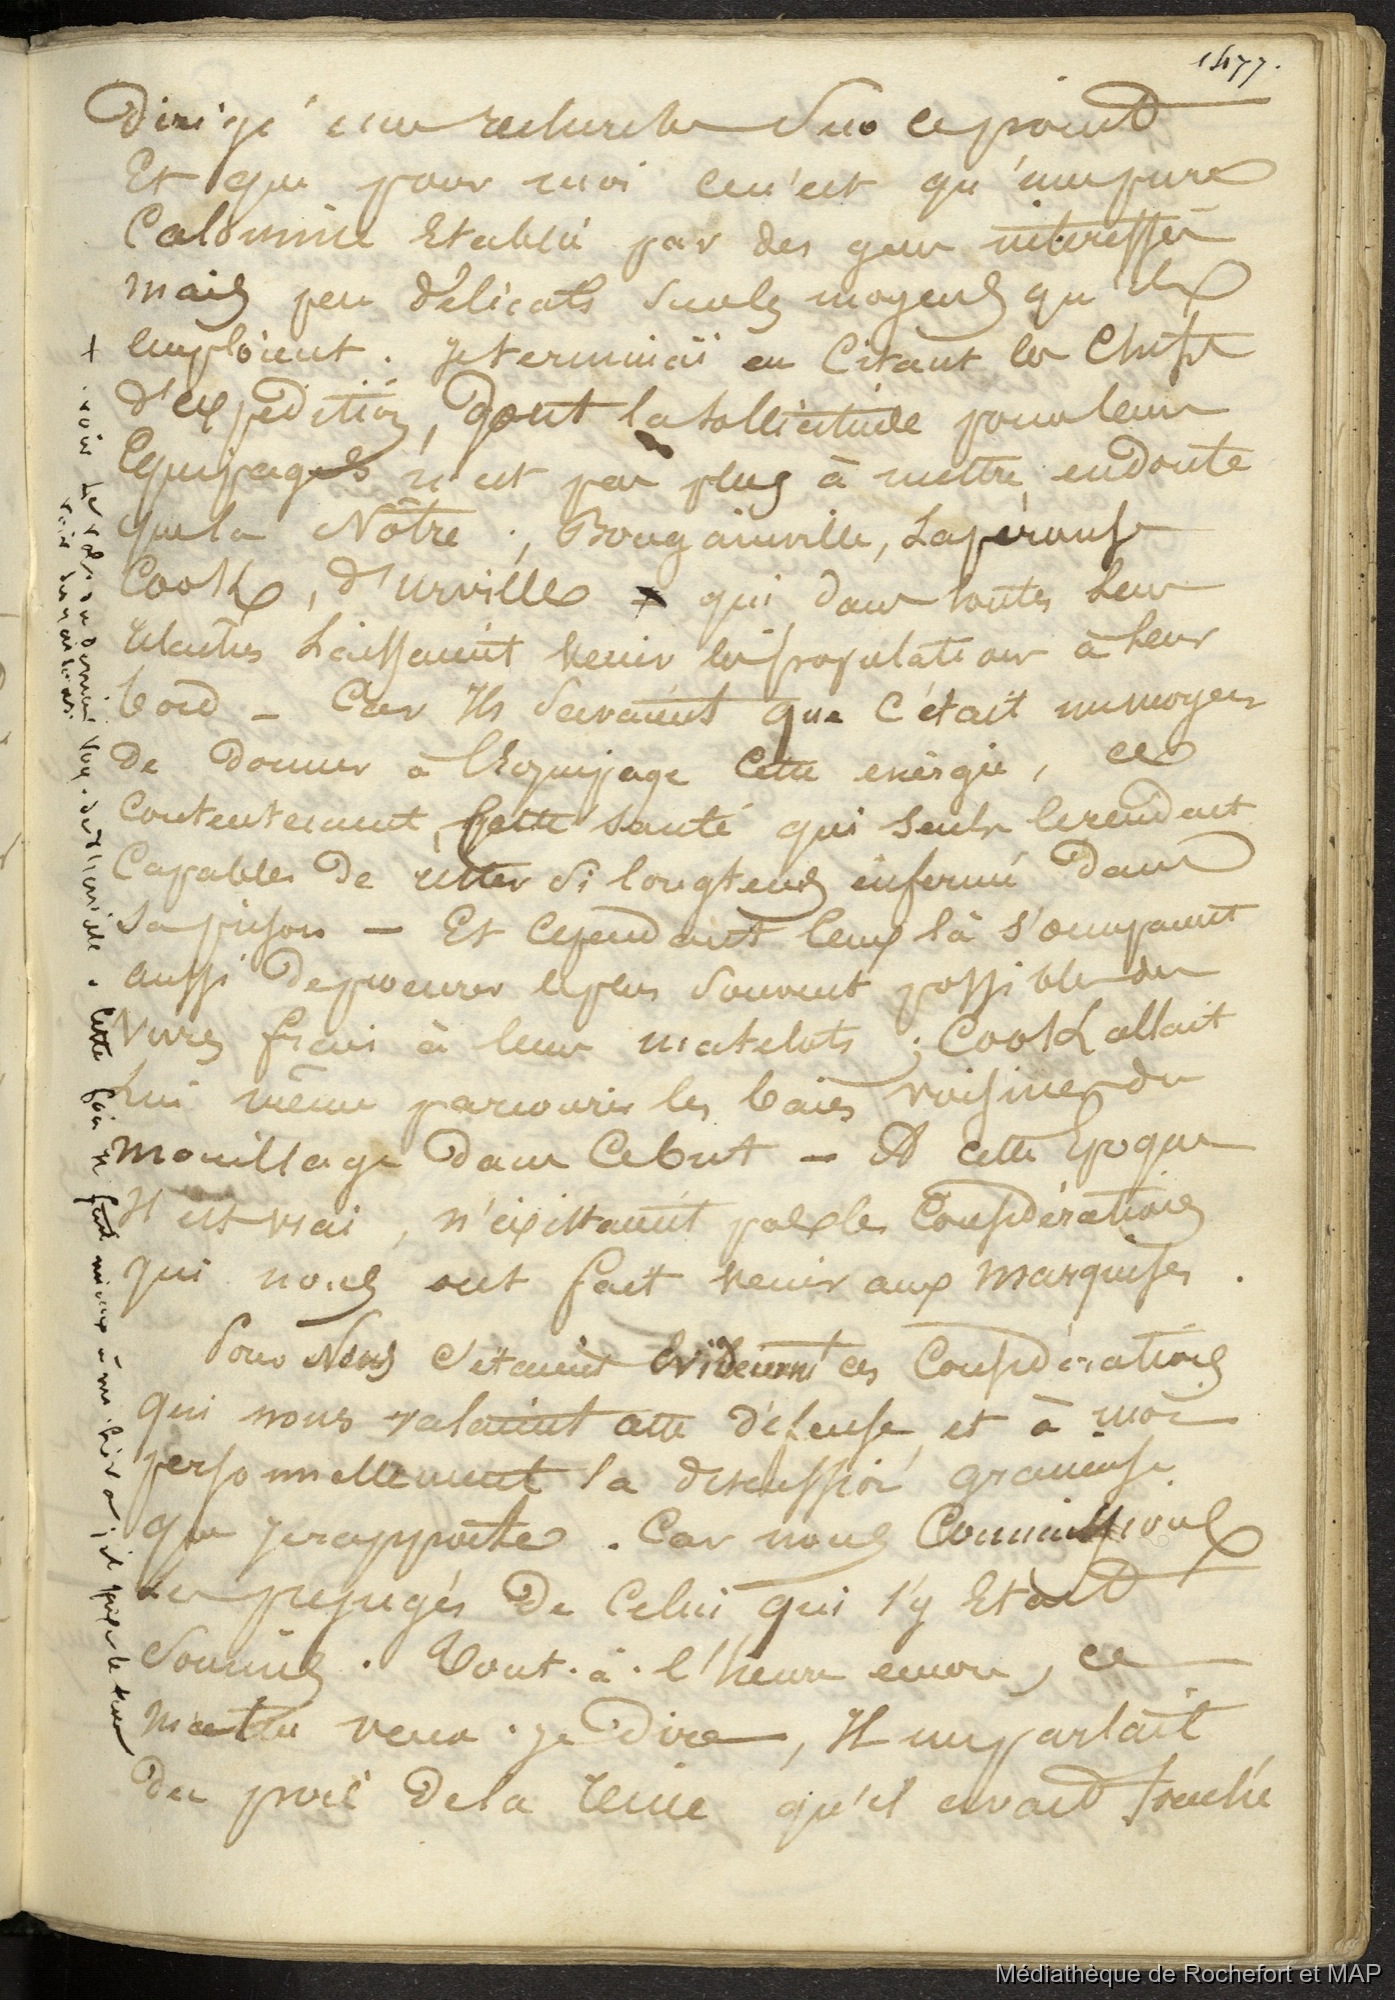 1477.
Dirigé une recherche sur ce point
Et que pour moi ce n'est qu'une pure
Calomnie Etablie par des gens intéressés
mais peu délicats sur les moyens qu'ils
emploient. je terminai en Citant les Chefs
d'expédition, dont la sollicitude pour leurs
Equipages n'est pas plus à mettre en doute
que la Nôtre ; Bougainville, Lapérouse
Cook, d'urville + qui dans toutes leurs
relaches Laissaient venir les populations à leur
bord – Car Ils savaient que C'était un moyen
de donner à l'équipage Cette énérgie, ce
contentement, Cette santé qui seuls le rendait
Capables de rester si longtems enfermé dans
sa prison – Et cependant Ceux là s'occupaient
aussi de procurer le plus souvent possible des
Vivres frais à leurs matelots ; Cook allait
Lui même parcourir les baies voisines du
mouillage dans Ce but – A cette Epoque
Il est vrai, n'existaient pas les Considérations
qui nous ont fait venir aux Marquises.
Pour Nous c'étaient Evidemment ces Considérations
qui nous valaient cette défense, et à moi
personnellement la discussion
que je rapporte. Car nous Connaissions
les préjugés de Celui qui s'y Etait
soumis. Tout-à-l'heure encore, ce
matin veux-je dire, Il me parlait
du poil de la reine qu'il avait touché
+ voir le rel. du dernier voy. de d'urville. Cette fois il faut mieux
voir